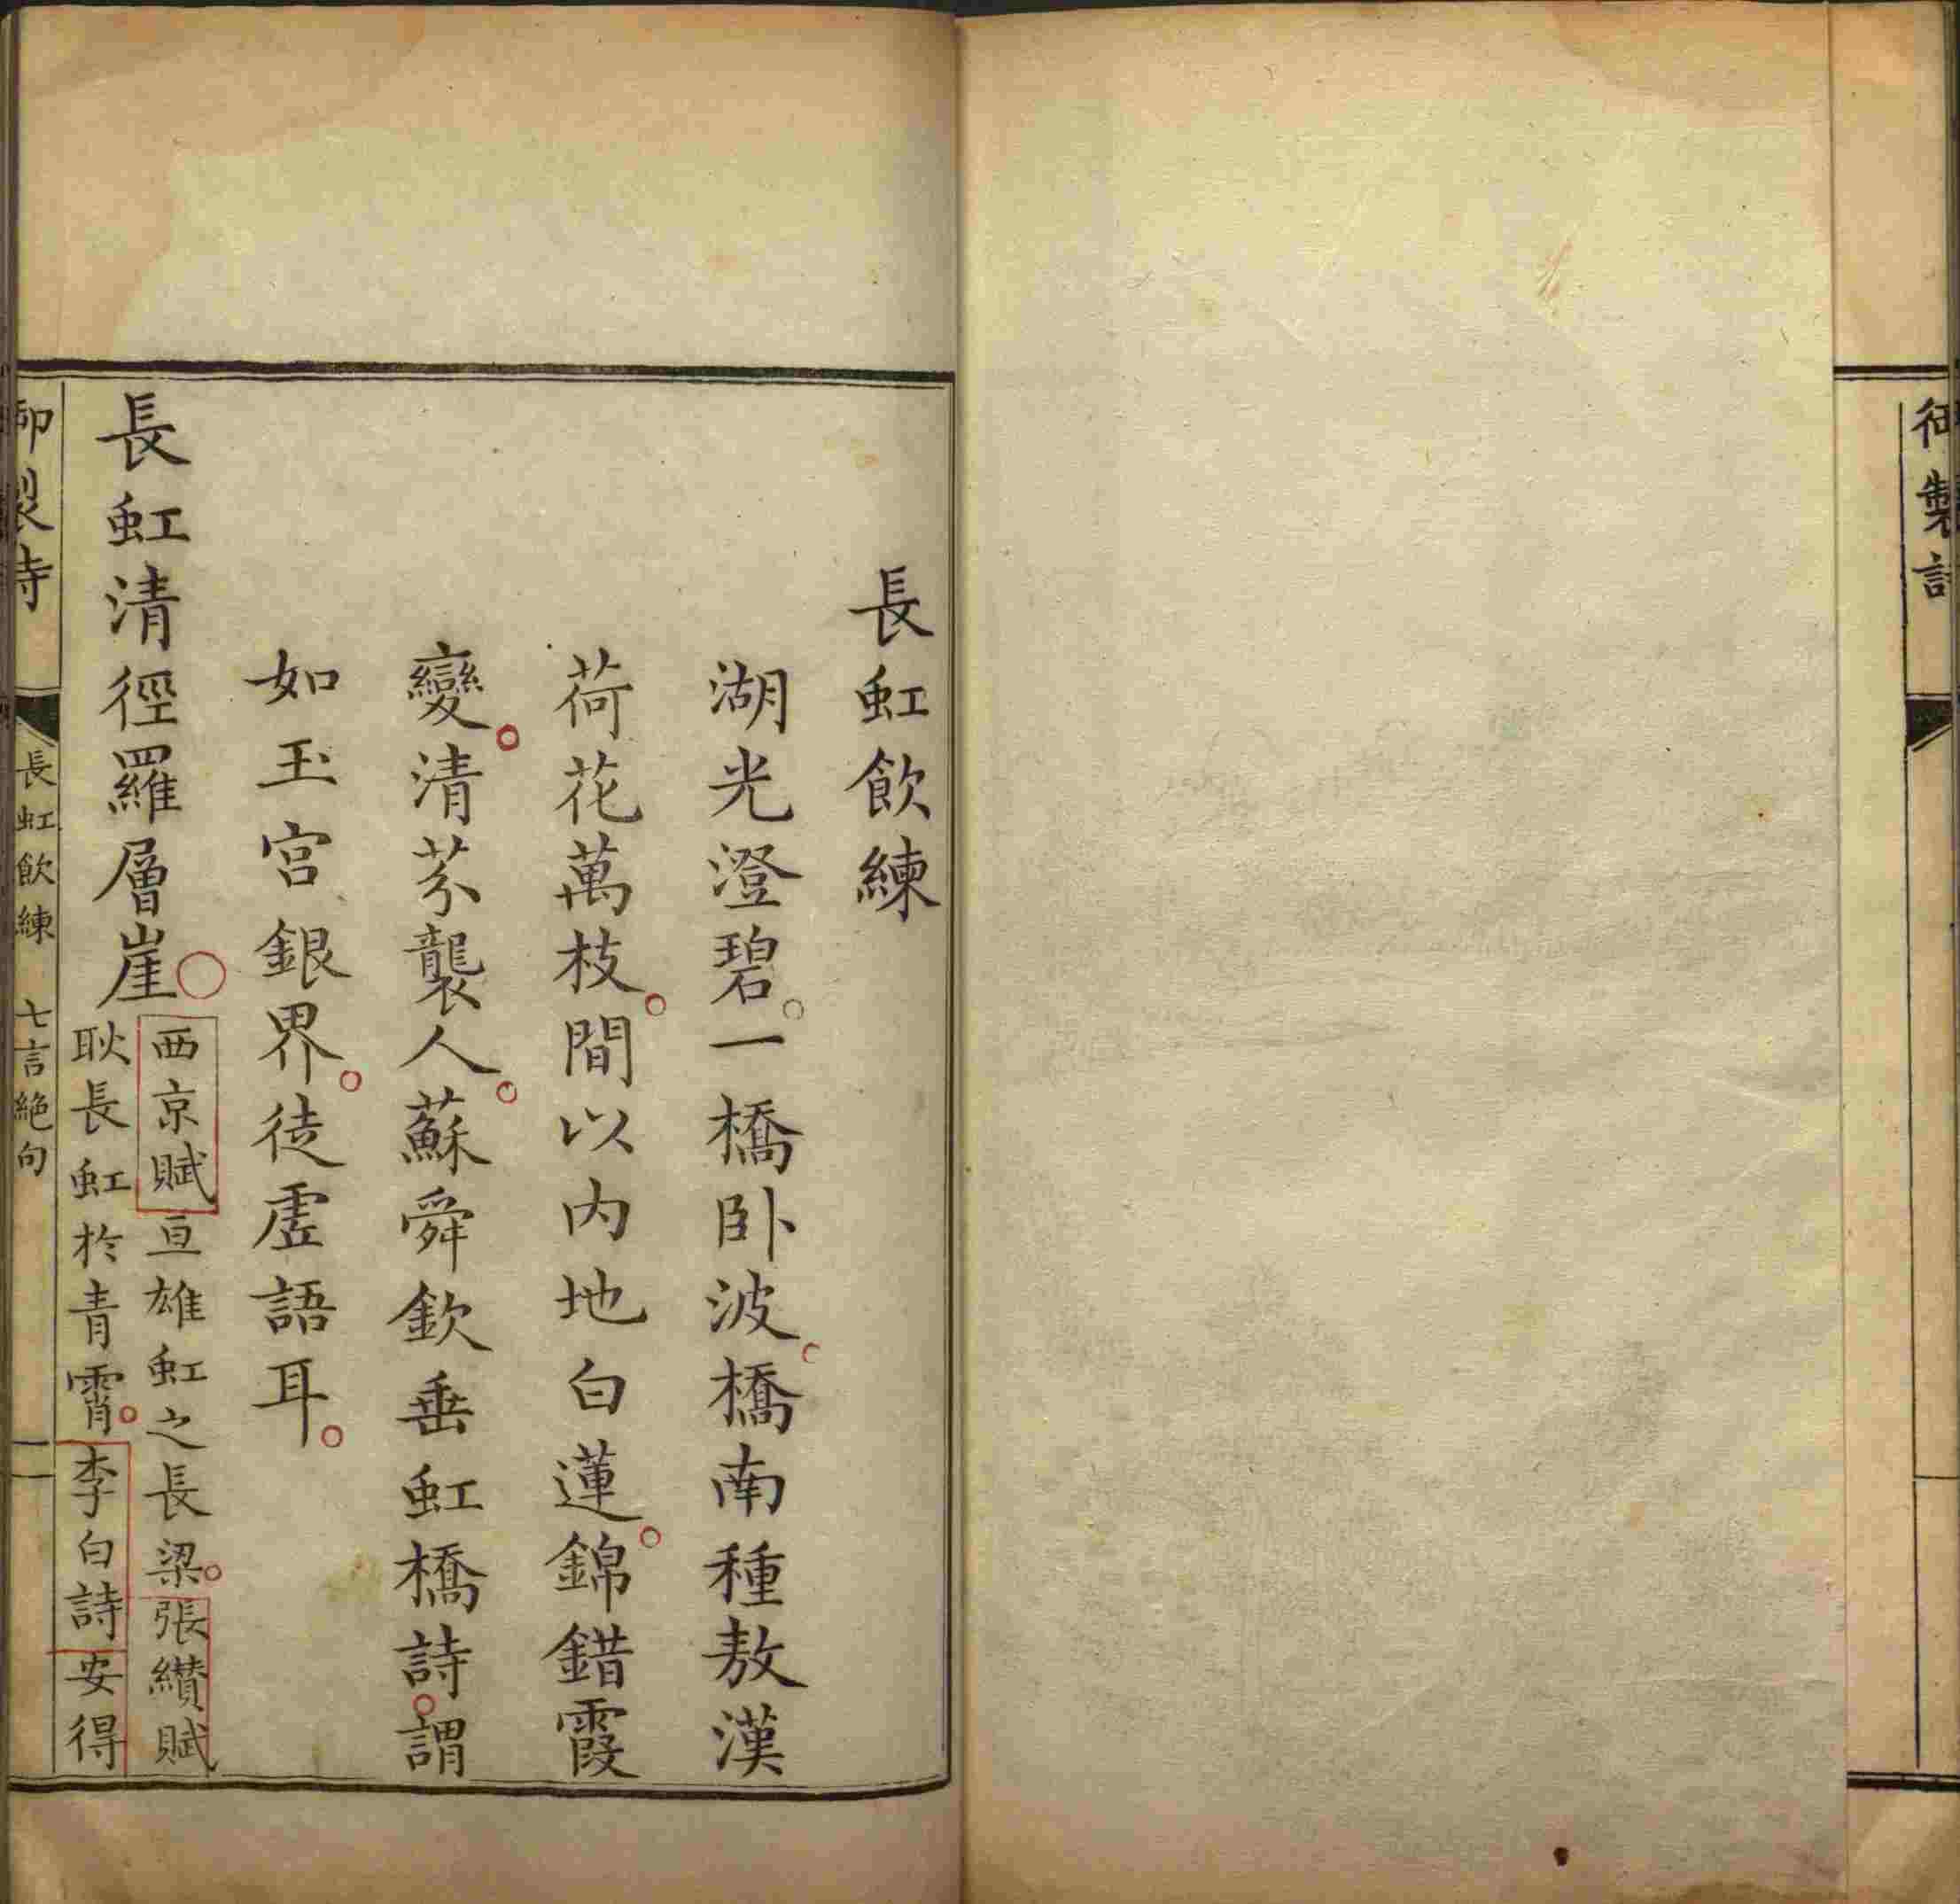 御製詩
長虹飲練
湖光澄碧。一橋卧波。橋南種敖漢
荷花萬枝。間以内地白蓮。錦錯霞
變。清芬襲人。蘇舜欽垂虹橋詩。謂
如玉宫銀界。徒虚語耳。
長虹清徑羅層崖。
西京賦亘雄虹之長梁。張纘賦
耿長虹於青霄。李白詩安得
御製詩 長虹飲練 七言絶句 一